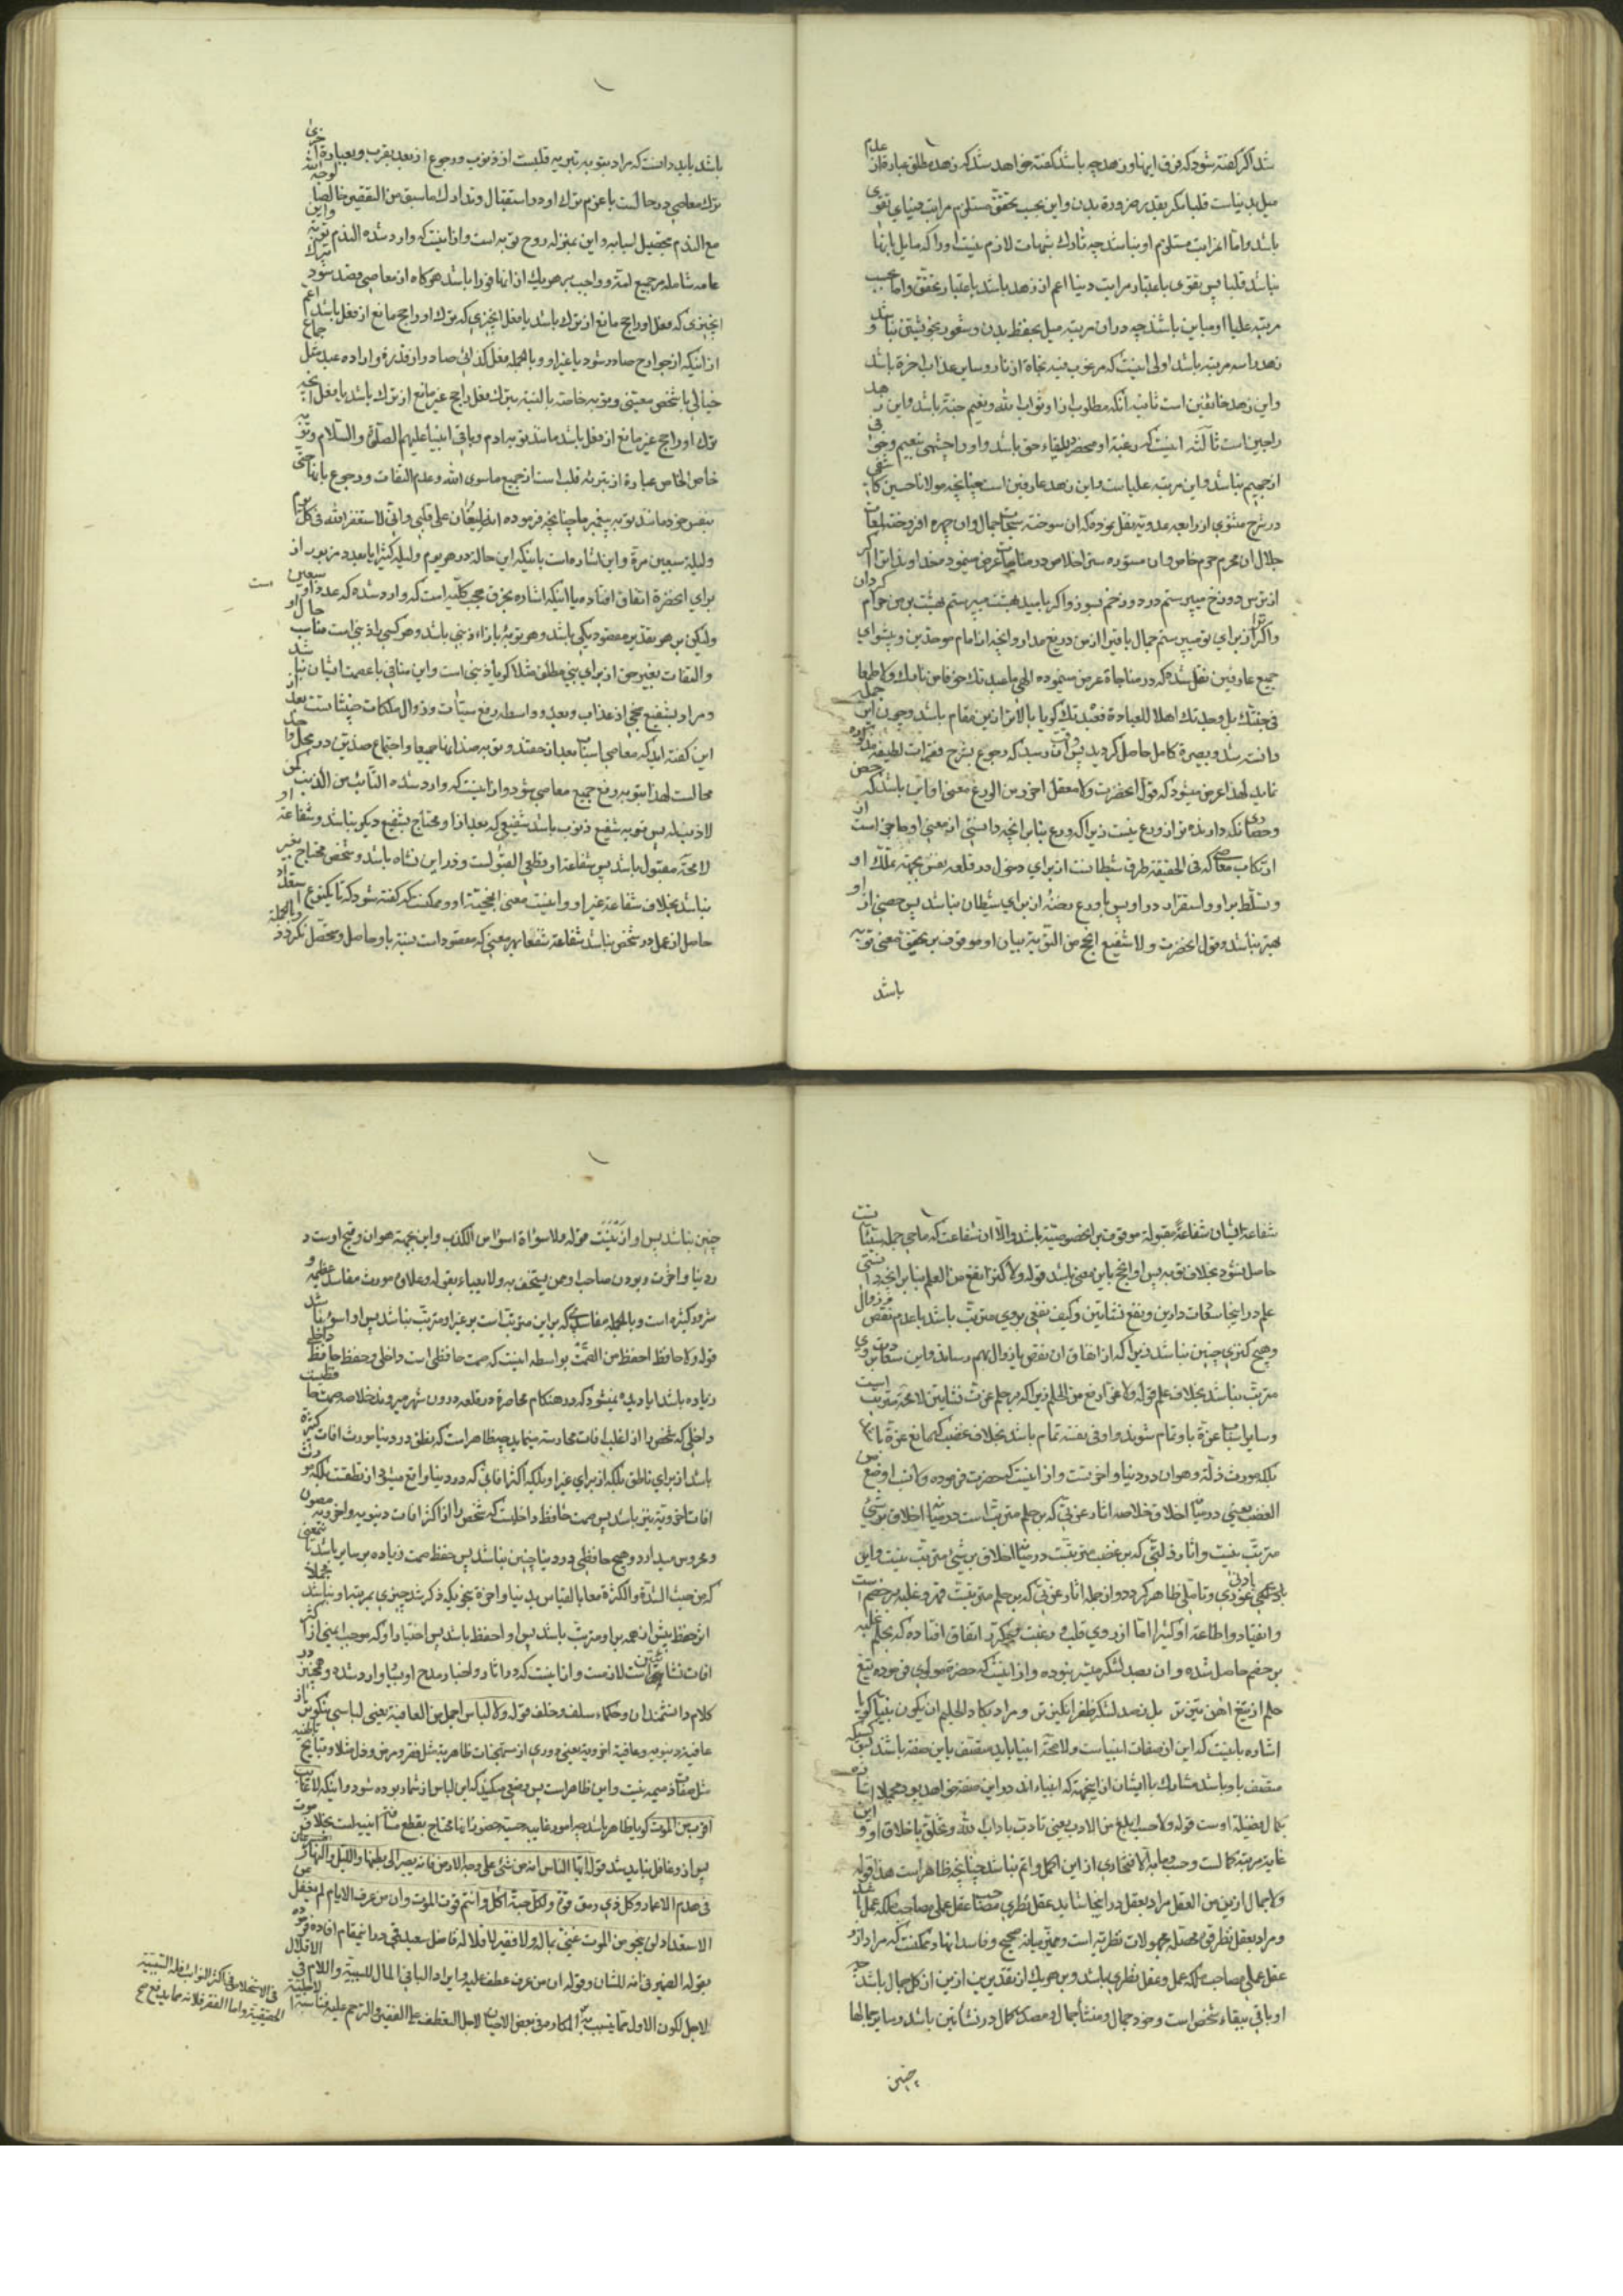 شد اگر گفته شود که فرق ایما و زهد چه باشد گفته خواهد شد که زهد مطلق عبارة از عدم
میل بدنیاست قلبا مگر بقدر ضرورة بدن و این بحسب تحقق مستلزم مراتب دنیای تقوی
باشد و اما مراتب مستلزم او نباشد چه تارك شبهات لازم نیست او را که مایل بانها
نباشد قلبا پس تقوی باعتبار مراتب دنیا اعم از زهد باشد باعتبار تحقق و اما بحسب
مرتبه علیا او مباین باشد چه در ان مرتبه میل بحفظ بدن و شعور بخویشتن نباشد و
زهد را سه مرتبه باشد اولی اینست که مرغوب فیه نجاة از نار و سایر عذاب اخرة باشد
و این زهد خائفین است ثانیه آنکه مطلوب ازا و ثواب الله و نعیم جنة باشد و این زهد
راجین است ثالثه اینست که رغبة او منحصر بلقاء حق باشد و او را چشمی بنعیم و خوفی
از جحیم نباشد و این مرتبه علیاست و این زهد عارفین است چنانچه مولانا حسین کاشفی
در شرح مثنوی از رابعه عدویه نقل نموده که ان سوخته سبحات جمال و ان چهره افروخته لمعات
جلال ان محرم حرم خاص و ان مستوره ستر اخلاص در مناجات عرض مینمود خداوندا مرا اگر
از ترس دوزخ میپرستم در دوزخم بسوز و اگر بامید بهشت میپرستم بهشت بر من حرام گردان
و اگر از برای تو میپرستم جمال باقیرا از من دریغ مدار و انچه از امام موحدین و پیشوای
جمیع عارفین نقل شده که در مناجاة عرض مینموده الهی ما عبدتك خوفا من نارك ولا طمعا
فی جنتك بل وجدتك اهلا للعبادة فعبدتك گویا بالاتر ازین مقام باشد و چون این جمله
دانسته شد و بصیرة کامل حاصل گردید پس وقت ان رسید که رجوع بشرح فقرات لطیفه مذکوره
نماید لهذا عرض میشود که قول انحضرت ولا معقل احرز من الورع معنی او این باشد که حصن
و حصاری نگه دارنده تر از ورع نیست زیرا که ورع بنا بر انچه دانستی از معنی او ماحی است از
ارتکاب معاصی که فی الحقیقة طرق شیطانست از برای دخول در قلعه نفس بجهة تملك او
و تسلط بر او و استقرار در او پس با ورع رخنه از برای شیطان نباشد پس حصنی از او
بهتر نباشد و قول انحضرت ولا شفیع انجح من التوبة بیان او موقوف بر تحقیق معنی توبه
باشد
باشد باید دانست که مراد بتوبه تبریه قلبست از ذنوب و رجوع از بعد بقرب و بعبارة اخری
ترك معاصی در حالست با عزم ترك او در استقبال و تدارك ما سبق من التقصیر خالصا لوجه الله
مع الندم بتحصیل اسبابه و این بمنزله روح توبه است و ازینست که وارد شده الندم توبة و این
عامه شامله مر جمیع امة و واجب بر هر یك از انها فورا باشد هرگاه از معاصی قصد شود ترك
انچیزی که فعل او راجح مانع از ترك باشد یا فعل انچیزی که ترك او راجح مانع از فعل باشد اعم
از اینکه از جوارح صادر شود یا غیر او و بالجمله فعل کذائی صادر از قدرة و اراده عبد مثل جماع
خیالی با شخص معینی و توبه خاصه بالنسبه بترك فعل راجح غیر مانع از ترك باشد یا فعل انچه
ترك او راجح غیر مانع از فعل باشد مانند توبه ادم و باقی انبیاء علیهم الصلوة والسلام و توبه
خاص الخاص عبارة از تبرئه قلب است از جمیع ماسوی الله و عدم التفات و رجوع بانها حتی
بنفس خود مانند توبه پیغمبر ما چنانچه فرموده انه لیغان علی قلبی وانی لاستغفر الله فی کل یوم
ولیلة سبعین مرة و این اشاره است باینکه این حالة در هر یوم ولیله کثیرا یا بعدد مزبور از
برای انحضرة اتفاق افتاده یا اینکه اشاره بخرق حجب کلیه است که وارد شده که عدد او سبعین است
ولیکن بر هر تقدیر مقصود یکی باشد و هر توبه بازاء ذنبی باشد و هر کسی را ذنبی است مناسب حال او
و التفات بغیر حق از برای نبی مطلق مثلا گویا ذنبی است و این منافی با عصمت ایشان نباشد
و مراد بشفیع منجی از عذاب و بعد و واسطه رفع سیئات و زوال ملکات خبیثاست بعد از
این گفته اید که معاصی اسباب بعد از حقند و توبه ضد انها جمیعا و اجتماع ضدین در محل واحد
محالست لهذا بتوبه رفع جمیع معاصی شود و ازینست که وارد شده التائب من الذنب کمن
لا ذنب له پس توبه شفیع ذنوب باشد شفیعی که بعد ازا و محتاج بشفیع دیگر نباشد و شفاعة او
لا محة مقبول باشد پس شفاعة او قطعی القبولست و در این نشاه باشد و شخص محتاج بغیر
نباشد بخلاف شفاعة غیر او و اینست معنی انجحیة او و ممکنست که گفته شود که تا یکنوع استعداد
حاصل از عمل در شخص نباشد شفاعة شفعا بهر معنی که مقصود است نسبة باو حاصل و محصل نگردد و بالجملة
شفاعة ایشان شفاعة مقبولة موقوف بر انخصوصیة باشد والا ان شفاعت که ماحی جمله سیئات
حاصل نشود بخلاف توبه پس او انجح باین معنی باشد قوله ولا کنز انفع من العلم بنا بر انچه دانستی
علم در اینجا سعادات دارین و نفع نشاتین و کیف نفعی بروی مترتب باشد با عدم نقص و زوال
و هیچ کنزی چنین نباشد زیرا که از انفاق ان نقص یا زوال بهم رساند و این سعادات بروی
مترتب نباشد بخلاف علم قوله ولا عز ارفع من الحلم زیرا که بر حلم عزت نشاتین لا محة مترتبست
و سایر اسباب عزة باو تمام شوند و او فی نفسه تمام باشد بخلاف غضب که مانع عزة
بلکه مورث ذلة و هوان در دنیا و اخرتست و از اینست که حضرت فرموده ولا نسب اوضع من
الغضب یعنی در میان اخلاق خلاصه اثار عزتی که بر حلم مترتب است در میان اخلاق بر شئی
مترتب نیست و اثار ذلتی که بر غضب مترتبست در میان اخلاق بر شئ مترتب نیست و این
بادنی غوری و تاملی ظاهر گردد و از جمله اثار عزتی که بر حلم مترتبست قهر و غلبه بر خصم است
و انقیاد و اطاعة او کثیرا اما از روی قلب و رغبت اتفاق افتاده که بحلم غلبه
بر خصم حاصل شده و ان بصد لشکر میسر نبوده و از اینست که حضرة مولوی فرموده تیغ
حلم از تیغ اهن تیزتر بل ز صد لشکر ظفر انگیزتر و مراد بکاد الحلیم ان یکون نبیا گویا
اشاره باینست که این از صفات انبیاست و لا محة انبیا باید متصف باین صفة باشند پس کسیکه
متصف باو باشد مشارك با ایشان از اینجهة که انبیاء اند در این صفة خواهد بود
کمال فضیلة اوست قوله ولا حسب ابلغ من الادب یعنی تادب باداب الله و تخلق باخلاق او و این
غایة مرتبة کمالست و حسب و ما به الافتخاری از این اکمل و اتم نباشد چنانچه ظاهر است هذا قوله
ولا جمال ازین من العقل مراد بعقل در اینجا شاید عقل نظری مصاحب عقل عملی مصاحب ملکه عمل باشد
و مراد بعقل نظری قوه محصله مجهولات نظریه است و ممیز میانه صحیح و فاسد انها و ممکنست که مراد ازو
عقل عملی مصاحب ملکه عمل و عقل نظری باشد و بر هر یك از تقدیرین ازین از کل جمال باشد چه
او باقی ببقاء شخص است و خود جمال و منشأ جمال و مصدر کمال در نشاتین باشد و سایر جمالها
چنین
چنین نباشد پس او ازینست قوله ولا سوأة اسوأ من الکذب و این بجهة هوان و قبح اوست در
دنیا و اخرت و بودن صاحب او ممن یستخف به ولا یعباء بقوله و علاوه مورث مفاسد عظیمه و
شرور کثیره است و بالجمله مفاسدی که بر این مترتب است بر غیر او مترتب نباشد پس او اسوء باشد
قوله ولا حافظ احفظ من الصمت بواسطه اینست که صمت حافظی است داخلی و حفظ حافظ داخلی
زیاده باشد ایا دیده نمیشود که در هنگام محاصرة در قلعه درون شهر میروند خلاصه صمت حافظیست
داخلی که شخص را از اغلب افات محارسه مینماید چه ظاهر است که نطق در دنیا مورث افات کثیرة
باشد از برای ناطق بلکه از برای غیر او بلکه اکثر افاتی که در دنیا واقع میشود از نطقست بلکه مورث
افات اخرویه نیز باشد پس صمت حافظ داخلیست که شخص را از اکثر افات دنیویه و اخرویه مصون
و محروس میدارد و هیچ حافظی در دنیا چنین نباشد پس حفظ صمت زیاده بر سایر باشد یعنی
که من حیث الشدة والکثرة معا بالقیاس بدنیا و اخرة بنحویکه ذکر شد چیزی بمرتبه او نباشد
اثر حفظ بیش از همه بر او مترتب باشد پس او احفظ باشد پس اختیار او که موجب ایمنی از اکثر
افات نشاتین است لازمست و ازینست که در اثار و اخبار مدح او بسیار وارد شده و همچنین در
کلام دانشمندان و حکماء سلف و خلف قوله ولا لباس اجمل من العافیة یعنی لباسی نیکوتر از
عافیة دنیویه و عافیة اخرویه یعنی دوری از مستهجنات ظاهریه مثل فقر و مرض و ذل مثلا و قبایح باطنیه
مثل صفات ذمیمه نیست و این ظاهر است پس وضعی میکند که این لباس از شما ربوده شود و اینکه لا غائب
اقرب من الموت گویا ظاهر باشد چه امور غایبه حیث حضور انها محتاج بقطع مسافتست بخلاف موت
پس ازو غافل نباید شد قوله ایها الناس انه من مشی علی وجه الارض فانه یصیر الی بطنها واللیل والنهار یتسارعان
فی هدم الاعمار وکل ذی رمق قوة ولکل حبة اکل وانتم قوت الموت وان من عرف الایام لم یغفل عن
الاستعداد لن ینجو من الموت غنی بماله ولا فقیر لاقلاله فاضل سعید قمی در اینمقام افاده فرموده
بقوله الضمیر فی انه للشان وقوله ان من عرف عطف علیه وایراد الباء فی المال للسببیة واللام فی الاقلال
لاجل لکون الاول مما یتسبب به المکاره فی بعض الاحیان لاجل التعطف علی الفقیر والترحم علیه مناسبة
فی الاستعمال وفی اکثر النوائب فله السببیة
الحقیقیة واما الفقر فلانه مما یدفع صح